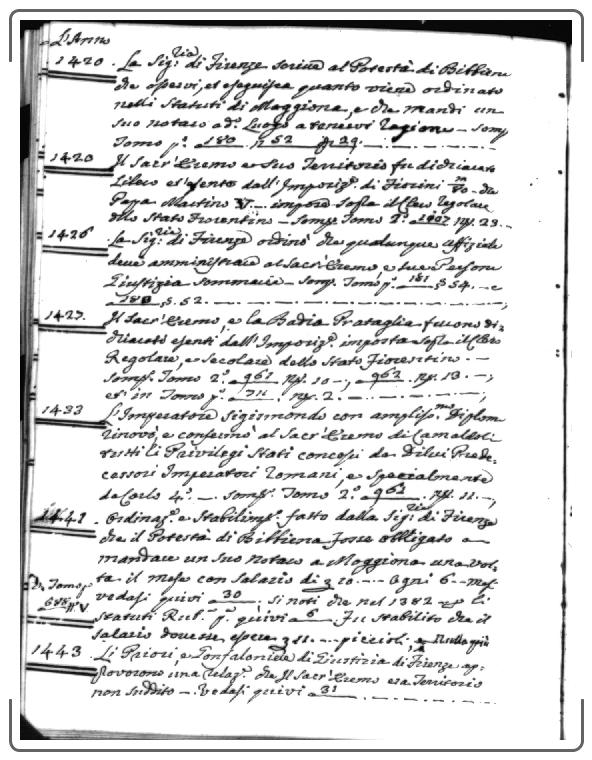 L'Anno
1420. La Sig:ria di Firenze scrive al Potestà di Bibbiena
che osservi, et eseguisca quanto viene ordinato
nelli Statuti di Moggiona, e che mandi un
suo notaro ad. Luogo a tenervi ragione – Somm
Tomo p.º 180 § 52 29.
1420 Il Sacr'Eremo e suo Territorio fu dichiarato
Libero et esente dall'Imposiz.e di Fiorini m/80 che
Papa Martino V. – impose sopra il Clero regolare
dello Stato Fiorentino – Somm. Tomo 2.º 1007 n. 29.
1426 La Sig:ria di Firenze ordinò che qualunque Uffiziale
deve amministrare al Sacr'Eremo, e sue Persone
Giustizia Sommaria – Somm. Tomo p.º 181 § 54. – e
180, §. 52.
1427. Il Sacr'Eremo, e la Badia Prataglia furono di-
chiarati esenti dall'Imposiz.e imposta sopra il Clero
Regolare, e secolare dello Stato Fiorentino. –
Somm. Tomo 2.º 961 n. 10 –; 962. n. 13. –;
et in Tomo p.º 711. n. 2.
1433 L'Imperatore Sigismondo con ampliss.mo Diplom
rinovò, e confermò al Sacr'Eremo di Camaldoli
tutti li Privilegi Stati concessi da Dilui Prede-
cessori Imperatori Romani, e Specialmente
da Carlo 4.º –. Somm. Tomo 2.º 961. n. 11 –;
1441. Ordinaz.e e Stabilim.to fatto dalla Sig:ria di Firenze
che il Potestà di Bibbiena fosse obbligato a
mandare un suo Notaro a Moggiona una vol-
ta il mese con salario di 20. – Ogni 6 – mesi
Tomo p.º
688. n. V.
vedasi quivi 30. si noti che nel 1382 li
Statuti Rub. p.º quivi 6 Fu stabilito che il
salario dovesse essere 11. – piccioli, e Nulla più
1443 Li Priori, e Gonfaloniere di Giustizia di Firenze ap-
provorono una relaz.e che Il Sacr'Eremo era Territorio
non suddito –. Vedasi quivi 31